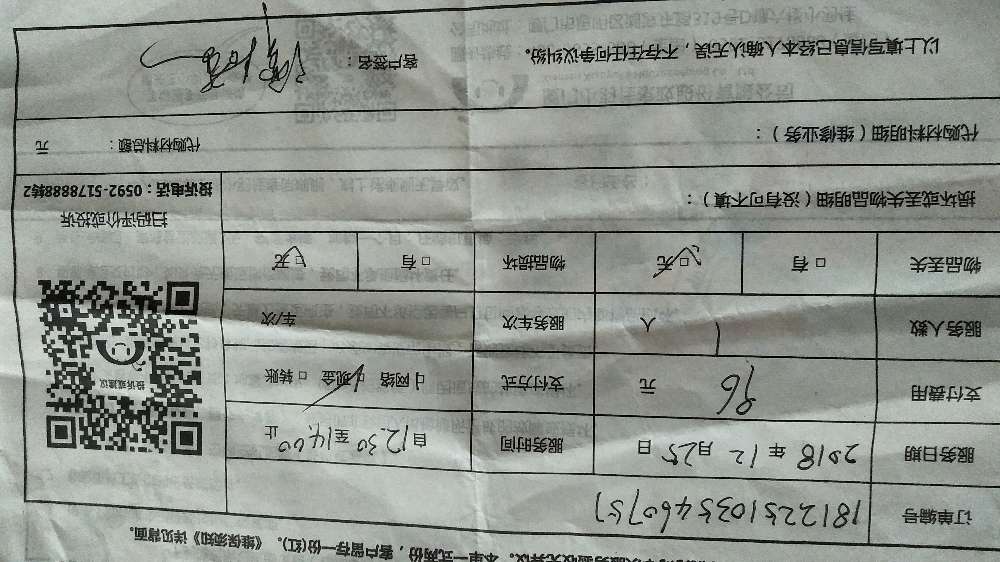 本次服务验收无异议。本单一式两份，客户留存一份(红)。《维保须知》详见背面。
订单编号 18122510354607151
服务日期 2018 年 12 月 25 日 服务时间 自 12:30 至 14:00 止
支付费用 96 元 支付方式 □ 网络 □ 现金 □ 转账
服务人数 1 人 服务车次 车/次
物品丢失 □ 有 □ 无 物品损坏 □ 有 □ 无
投诉或建议
扫码评价或投诉
投诉电话：0592-5178888转2
损坏或丢失物品明细（没有可不填）：
代购材料明细（维修业务）： 代购材料总额： 元
以上填写信息已经本人确认无误，不存在任何争议纠纷。 客户签名：